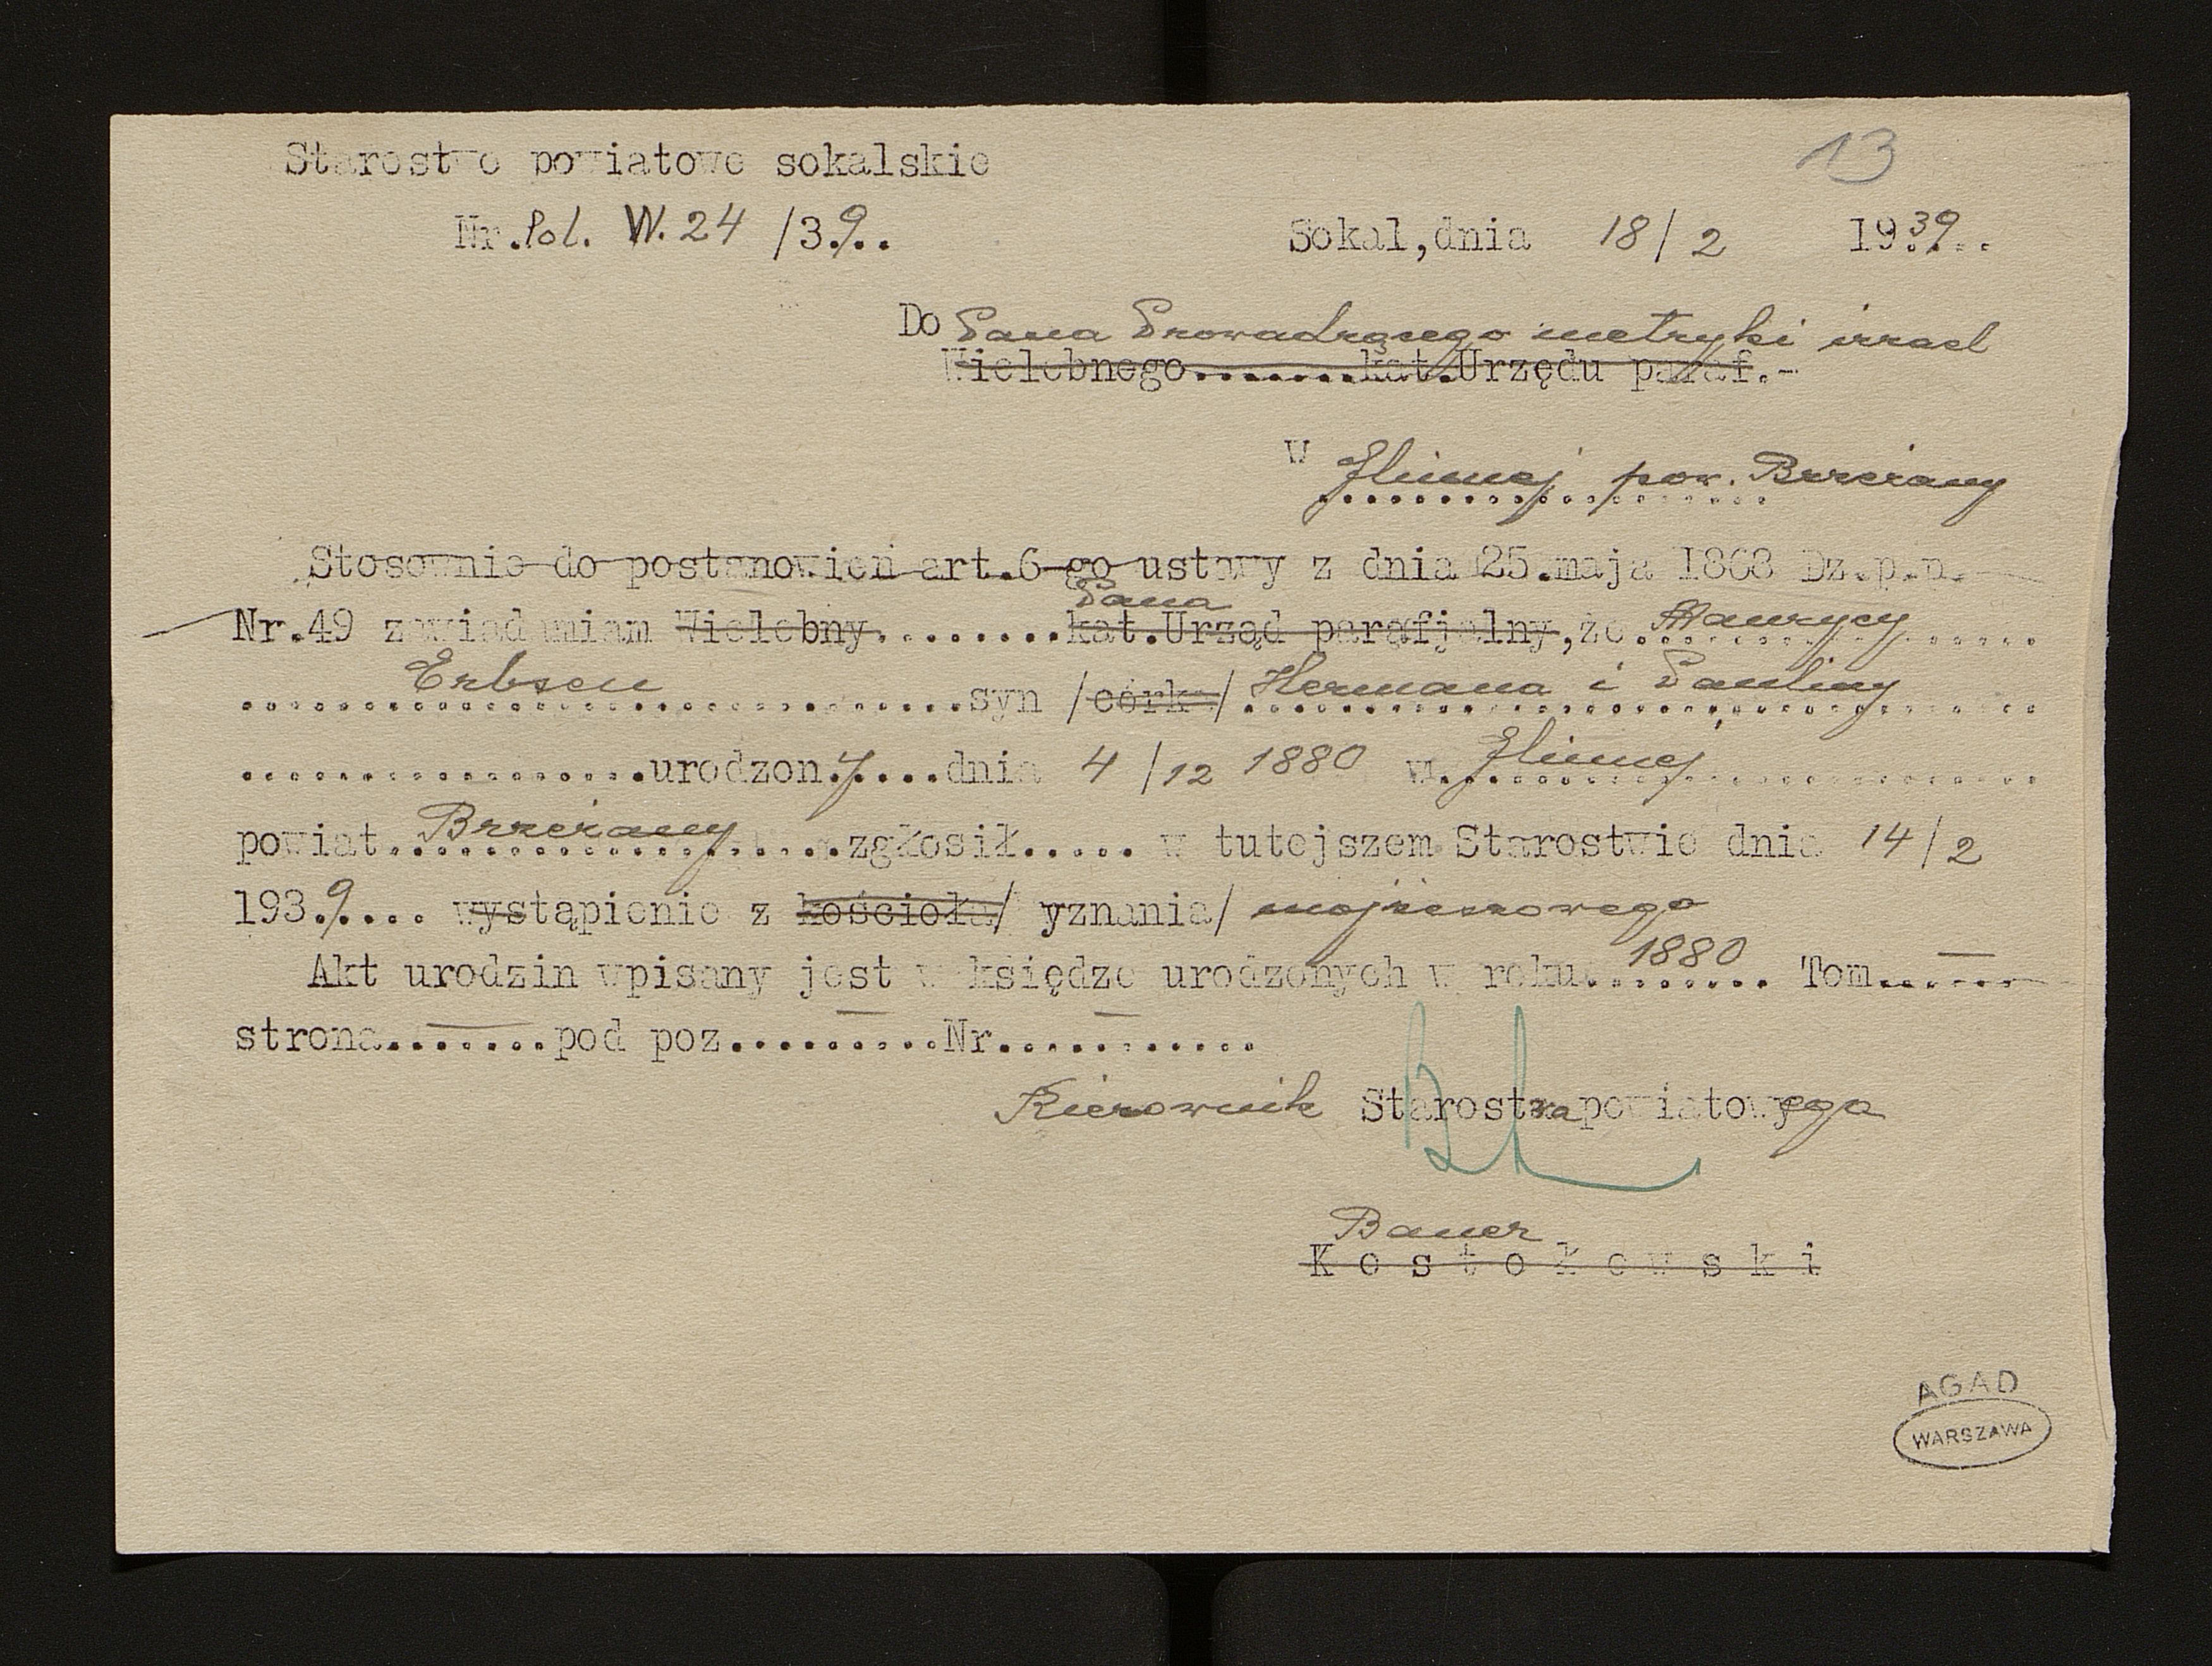 13
Starostwo powiatowe sokalskie
Nr. Pol. W. 24 /39..
Sokal, dnia 18/2 1939..
Do Pana Prowadzącego metryki izrael
Wielebnego.........kat.Urzędu paraf.-
w Zliniej pow. Brzeżany
Stosownie do postanowień art.6-go ustawy z dnia 25.maja 1868 Dz.p.p.
Pana
Nr.49 zawiadamiam Wielebny.........kat.Urząd parafjalny,że. Maurycy
Erbsen syn /córka/ Hermana i Pauliny
urodzon.y....dnia 4/12 1880 w. Zliniej
powiat Brzeżany zgłosił..... w tutejszem Starostwie dnia 14/2
1939.... wystąpienie z kościoła/ yznania/ mojżeszowego
Akt urodzin wpisany jest w księdze urodzonych w roku 1880 Tom.......
strona........pod poz..........Nr............
Kierownik Starostwa powiatowego
Bauer
K o s t o ł o w s k i
AGAD
WARSZAWA